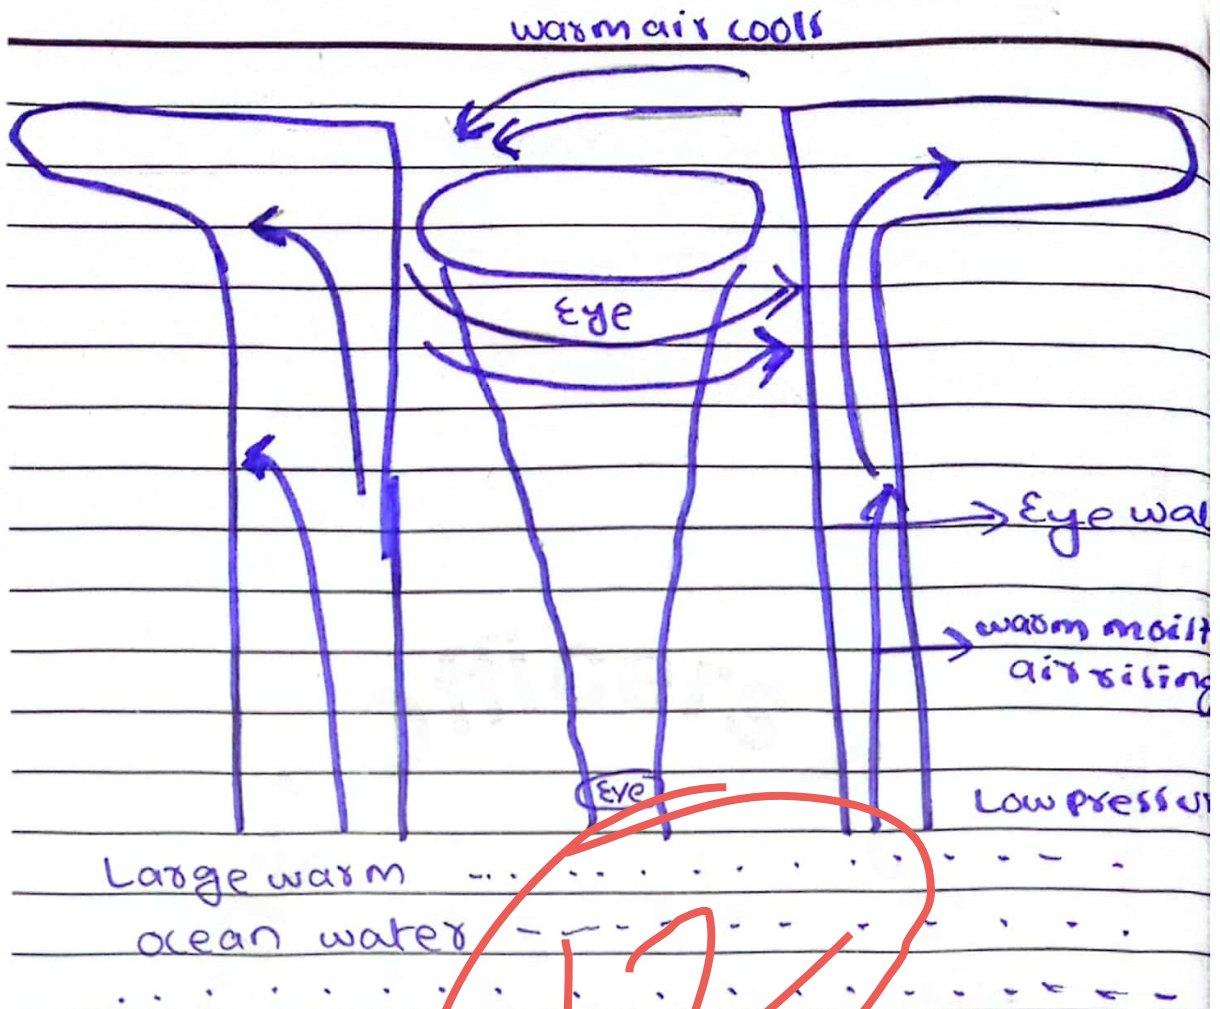 warm air cools
Eye
Eye wal
warm moist
air rising
Eye
Low pressur
Large warm
ocean water
12